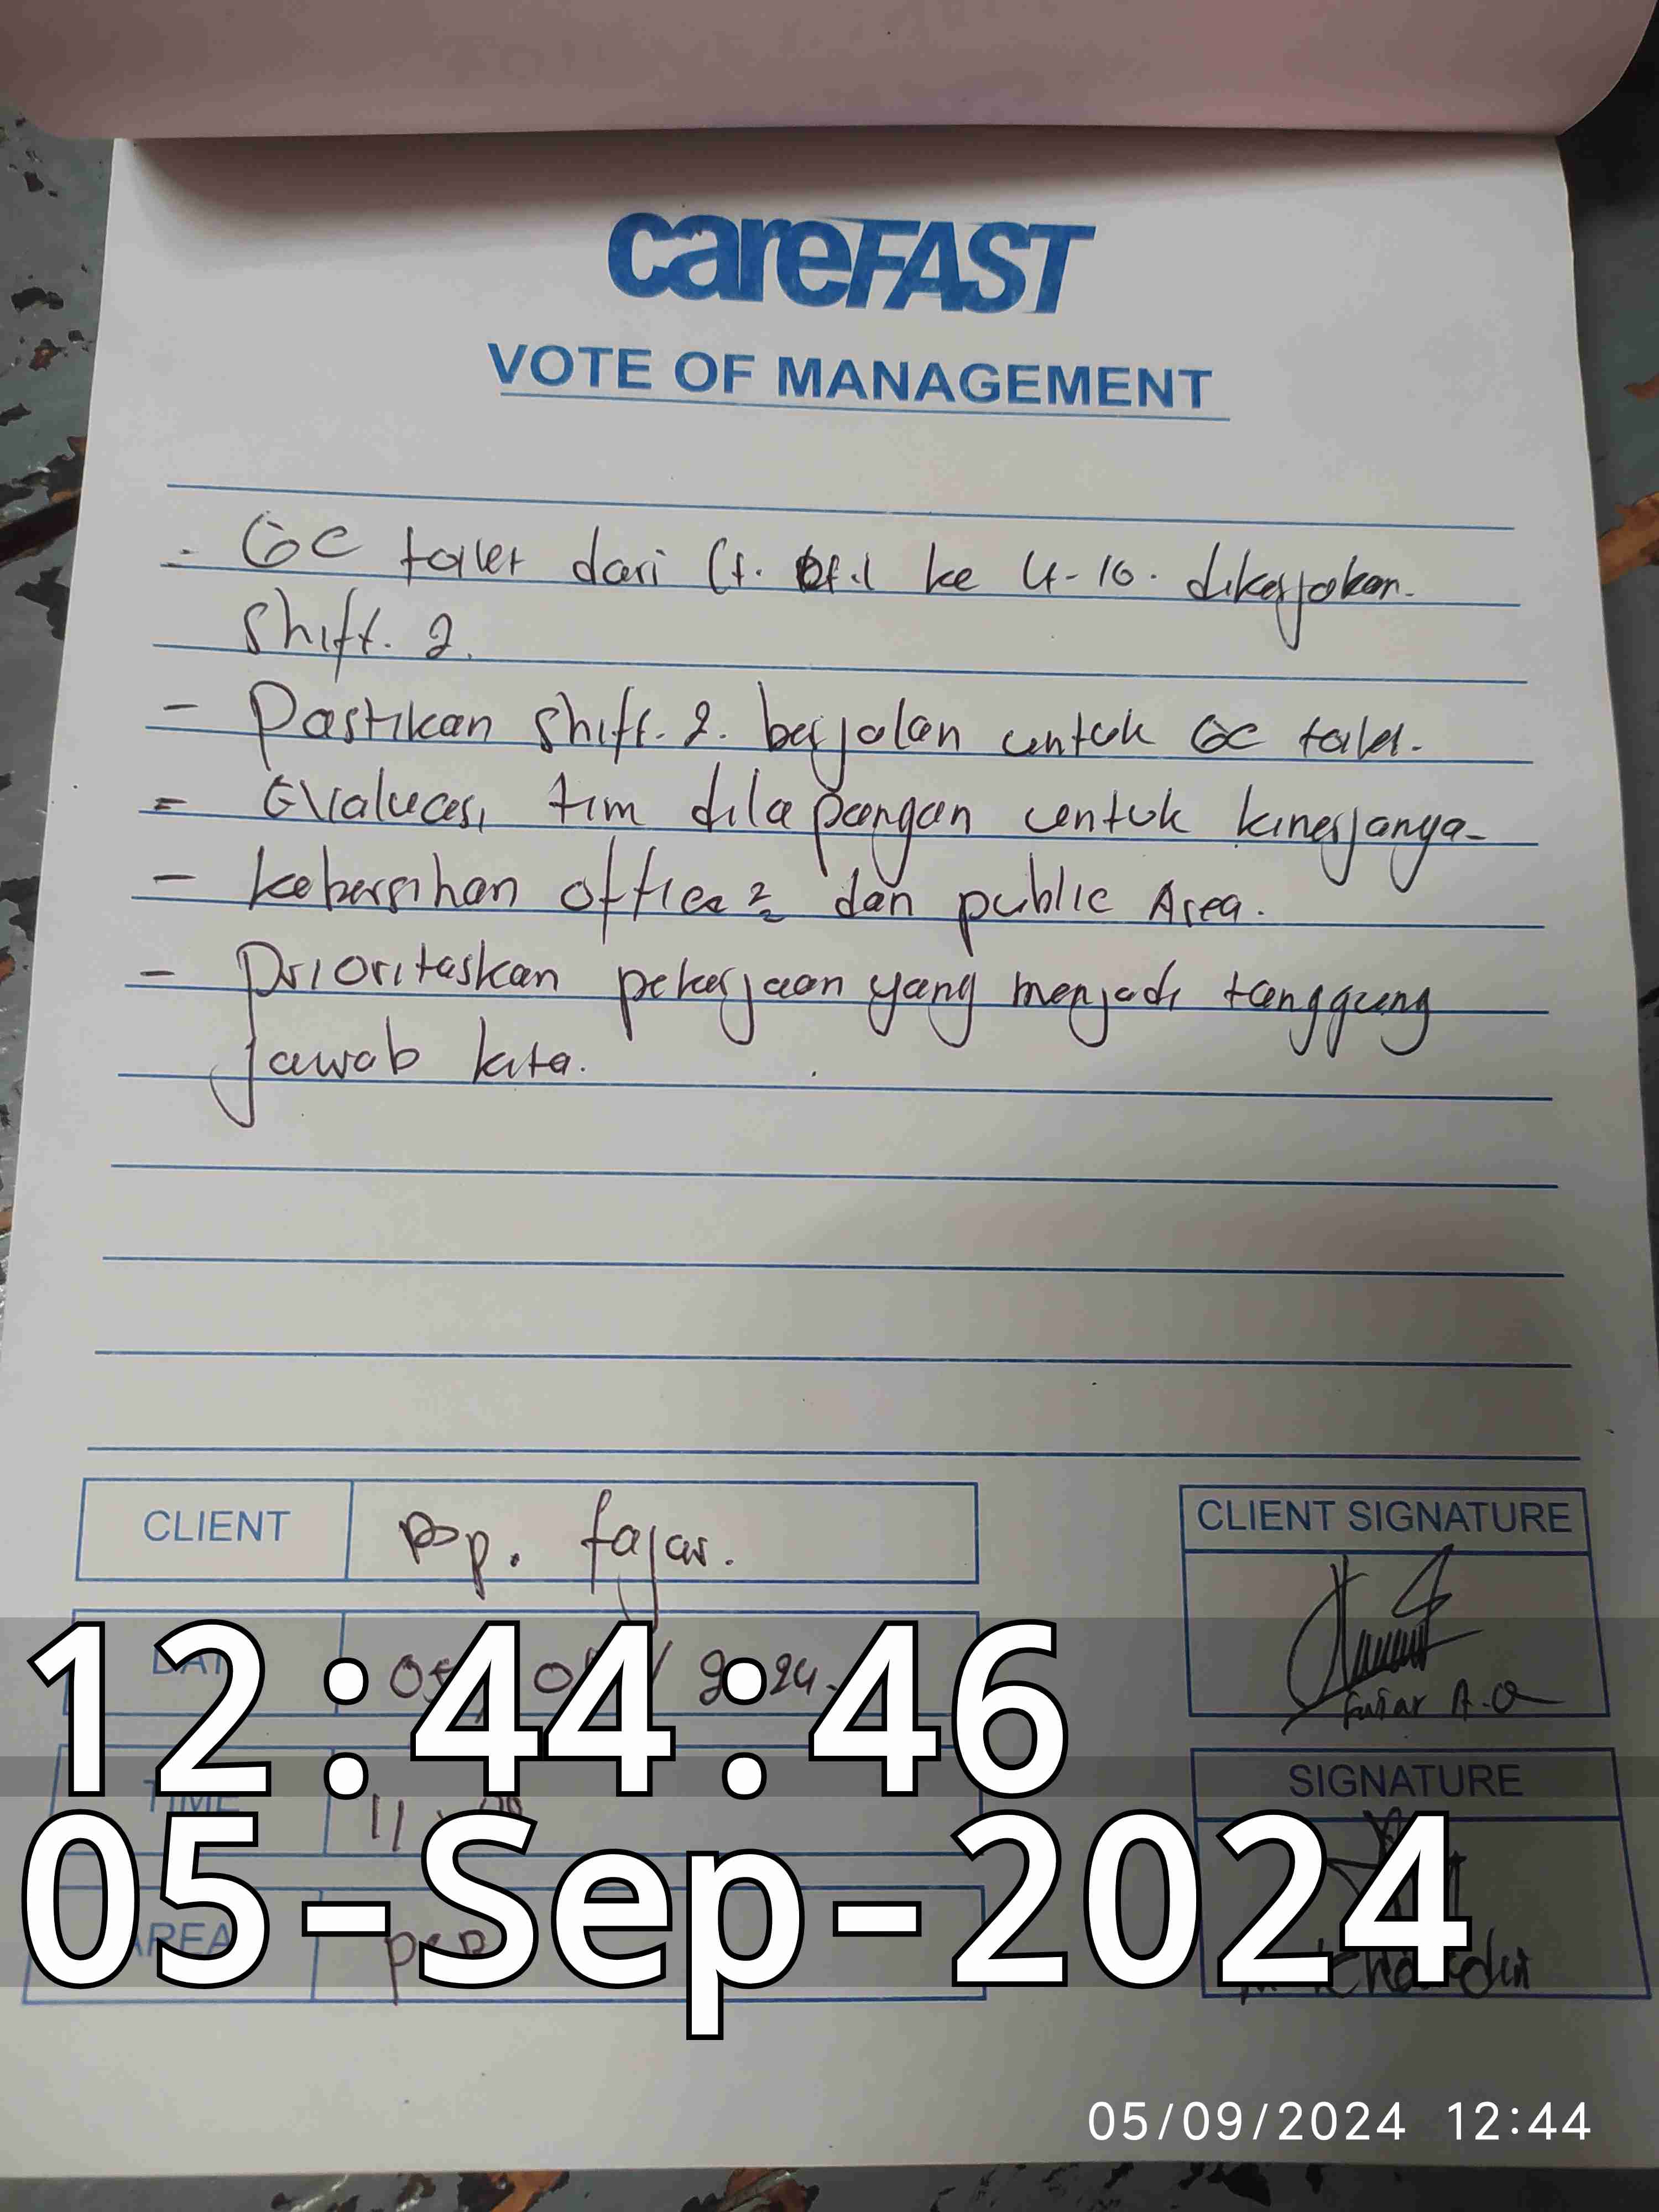 careFAST
VOTE OF MANAGEMENT
- GC toilet dari Lt. ke 4-10. dikerjakan.
Shift. 2.
- Pastikan Shift. 2. berjalan untuk GC toilet.
- Evaluasi tim dilapangan untuk kinerjanya-
- kebersihan office2 dan public Area.
- prioritaskan pekerjaan yang menjadi tanggung
jawab kita.
CLIENT
Bp. fajar.
CLIENT SIGNATURE
Fajar A.
DATE
2024.
TIME
11
SIGNATURE
AREA
12:44:46
05-Sep-2024
05/09/2024 12:44